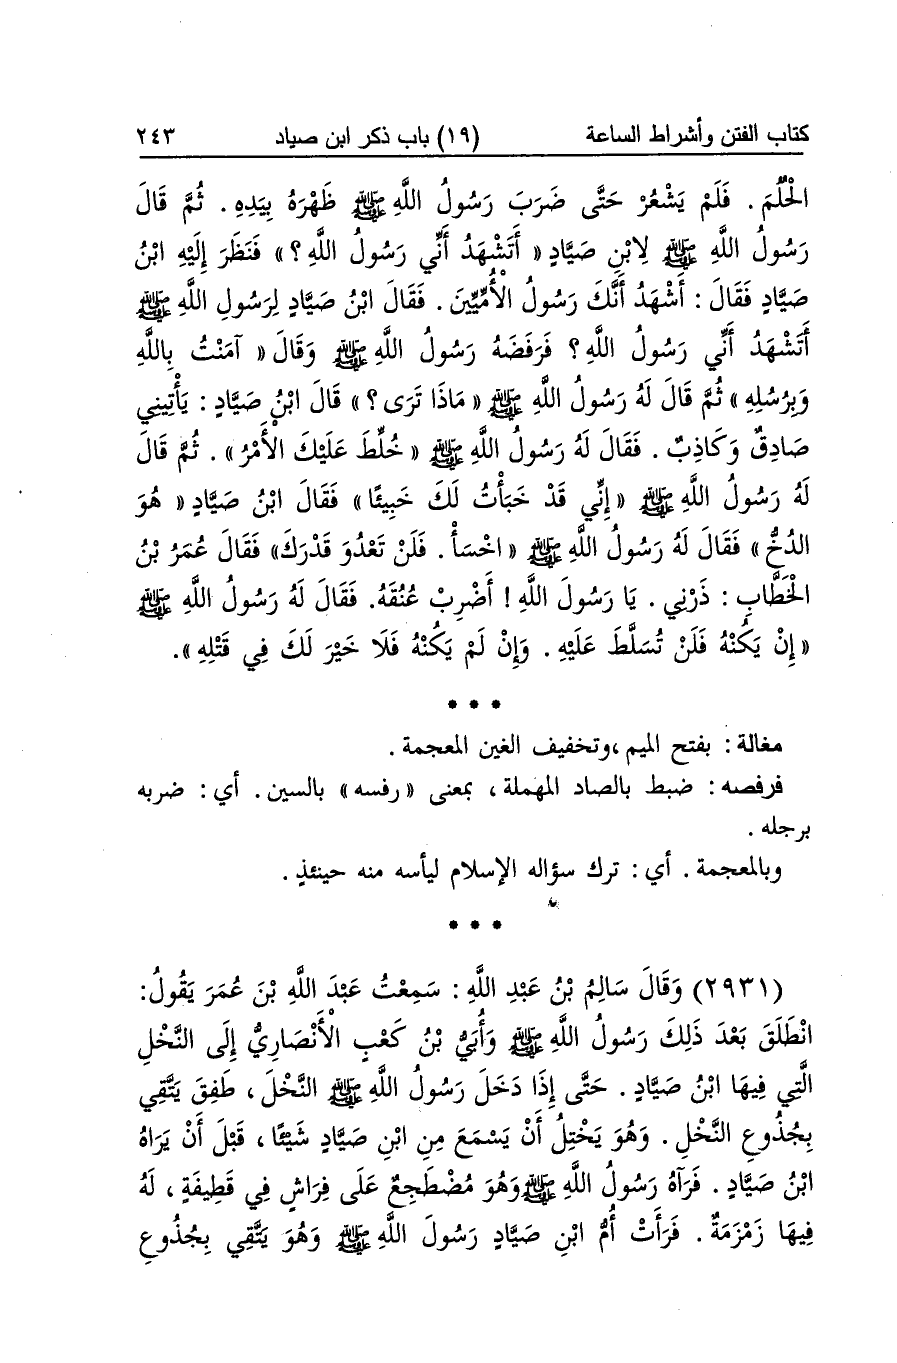 كتاب الفتن وأشراط الساعة (١٩) باب ذكر ابن صياد ٢٤٣
الْحُلُمَ . فَلَمْ يَشْعُرْ حَتَّى ضَرَبَ رَسُولُ اللَّهِ ﷺ ظَهْرَهُ بِيَدِهِ . ثُمَّ قَالَ
رَسُولُ اللَّهِ ﷺ لِابْنِ صَيَّادٍ « أَتَشْهَدُ أَنِّي رَسُولُ اللَّهِ ؟ » فَنَظَرَ إِلَيْهِ ابْنُ
صَيَّادٍ فَقَالَ : أَشْهَدُ أَنَّكَ رَسُولُ الْأُمِّيِّينَ . فَقَالَ ابْنُ صَيَّادٍ لِرَسُولِ اللَّهِ ﷺ
أَتَشْهَدُ أَنِّي رَسُولُ اللَّهِ ؟ فَرَفَضَهُ رَسُولُ اللَّهِ ﷺ وَقَالَ « آمَنْتُ بِاللَّهِ
وَبِرُسُلِهِ » ثُمَّ قَالَ لَهُ رَسُولُ اللَّهِ ﷺ « مَاذَا تَرَى ؟ » قَالَ ابْنُ صَيَّادٍ : يَأْتِينِي
صَادِقٌ وَكَاذِبٌ . فَقَالَ لَهُ رَسُولُ اللَّهِ ﷺ « خُلِّطَ عَلَيْكَ الْأَمْرُ » . ثُمَّ قَالَ
لَهُ رَسُولُ اللَّهِ ﷺ « إِنِّي قَدْ خَبَأْتُ لَكَ خَبِيئًا » فَقَالَ ابْنُ صَيَّادٍ « هُوَ
الدُّخُّ » فَقَالَ لَهُ رَسُولُ اللَّهِ ﷺ « اخْسَأْ . فَلَنْ تَعْدُوَ قَدْرَكَ» فَقَالَ عُمَرُ بْنُ
الْخَطَّابِ : ذَرْنِي . يَا رَسُولَ اللَّهِ ! أَضْرِبْ عُنُقَهُ. فَقَالَ لَهُ رَسُولُ اللَّهِ ﷺ
« إِنْ يَكُنْهُ فَلَنْ تُسَلَّطَ عَلَيْهِ . وَإِنْ لَمْ يَكُنْهُ فَلَا خَيْرَ لَكَ فِي قَتْلِهِ ».
* * *
مغالة : بفتح الميم ،وتخفيف الغين المعجمة .
فرفصه : ضبط بالصاد المهملة ، بمعنى « رفسه » بالسين . أي : ضربه
برجله .
وبالمعجمة . أي : ترك سؤاله الإسلام ليأسه منه حينئذٍ .
* * *
(٢٩٣١) وَقَالَ سَالِمُ بْنُ عَبْدِ اللَّهِ : سَمِعْتُ عَبْدَ اللَّهِ بْنَ عُمَرَ يَقُولُ:
انْطَلَقَ بَعْدَ ذَلِكَ رَسُولُ اللَّهِ ﷺ وَأُبَيُّ بْنُ كَعْبٍ الْأَنْصَارِيُّ إِلَى النَّخْلِ
الَّتِي فِيهَا ابْنُ صَيَّادٍ . حَتَّى إِذَا دَخَلَ رَسُولُ اللَّهِ ﷺ النَّخْلَ ، طَفِقَ يَتَّقِي
بِجُذُوعِ النَّخْلِ . وَهُوَ يَخْتِلُ أَنْ يَسْمَعَ مِنِ ابْنِ صَيَّادٍ شَيْئًا ، قَبْلَ أَنْ يَرَاهُ
ابْنُ صَيَّادٍ . فَرَآهُ رَسُولُ اللَّهِ ﷺ وَهُوَ مُضْطَجِعٌ عَلَى فِرَاشٍ فِي قَطِيفَةٍ ، لَهُ
فِيهَا زَمْزَمَةٌ . فَرَأَتْ أُمُّ ابْنِ صَيَّادٍ رَسُولَ اللَّهِ ﷺ وَهُوَ يَتَّقِي بِجُذُوعِ